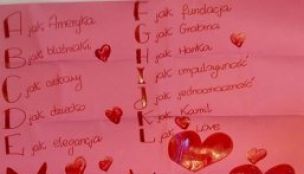 A jak Ameryka
B jak bliźniaki
C jak cudowny
D jak dziecko
E jak elegancja
F jak fundacja
G jak Grabina
H jak Hanka
I jak impulsywność
J jak jednoznaczność
K jak Kamil
L jak Love